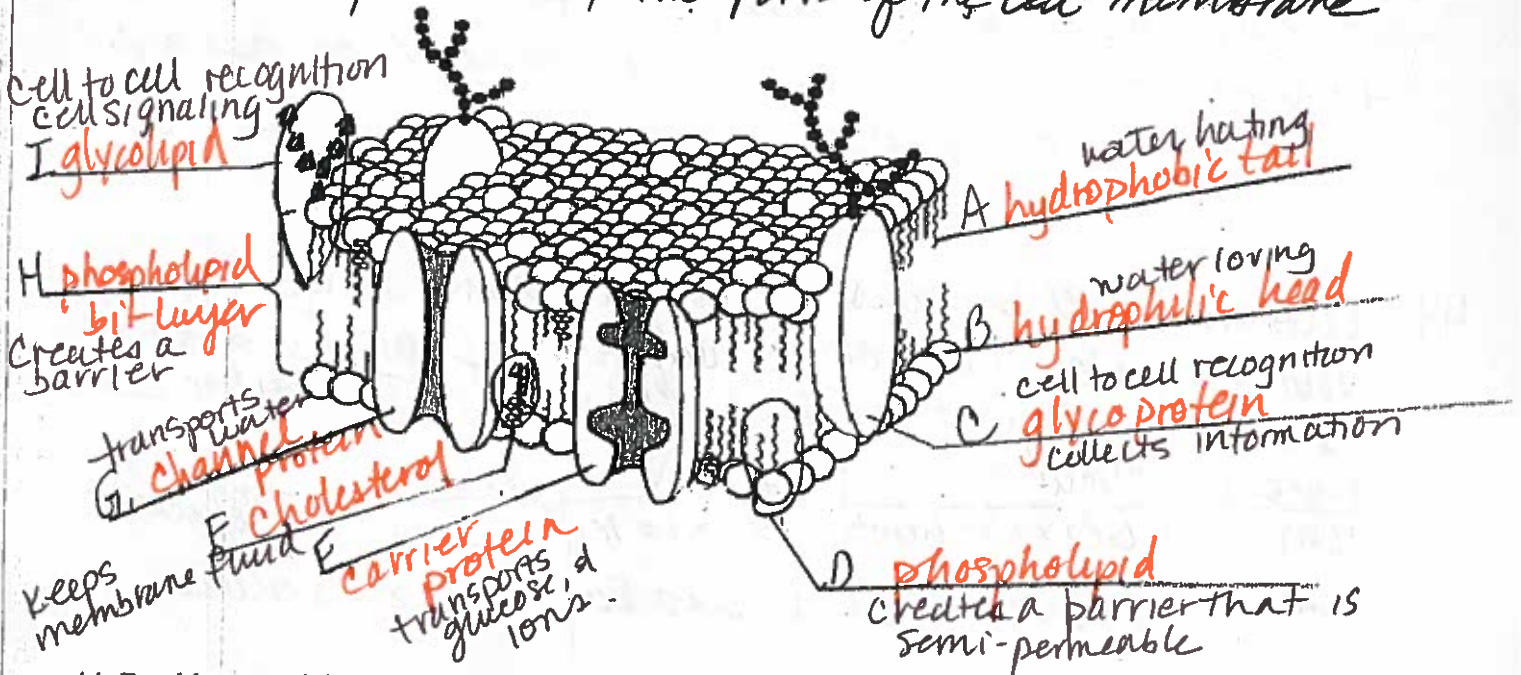 the parts of the cell membrane
cell to cell recognition
cell signaling
I glycolipid
H phospholipid
bi-layer
creates a
barrier
transports
water
G. channel
protein
F cholesterol
keeps
membrane fluid
E carrier
protein
transports
glucose, d
ions.
water hating
A hydrophobic tail
water loving
B. hydrophilic head
cell to cell recognition
C glycoprotein
collects information
D phospholipid
creates a barrier that is
semi-permeable